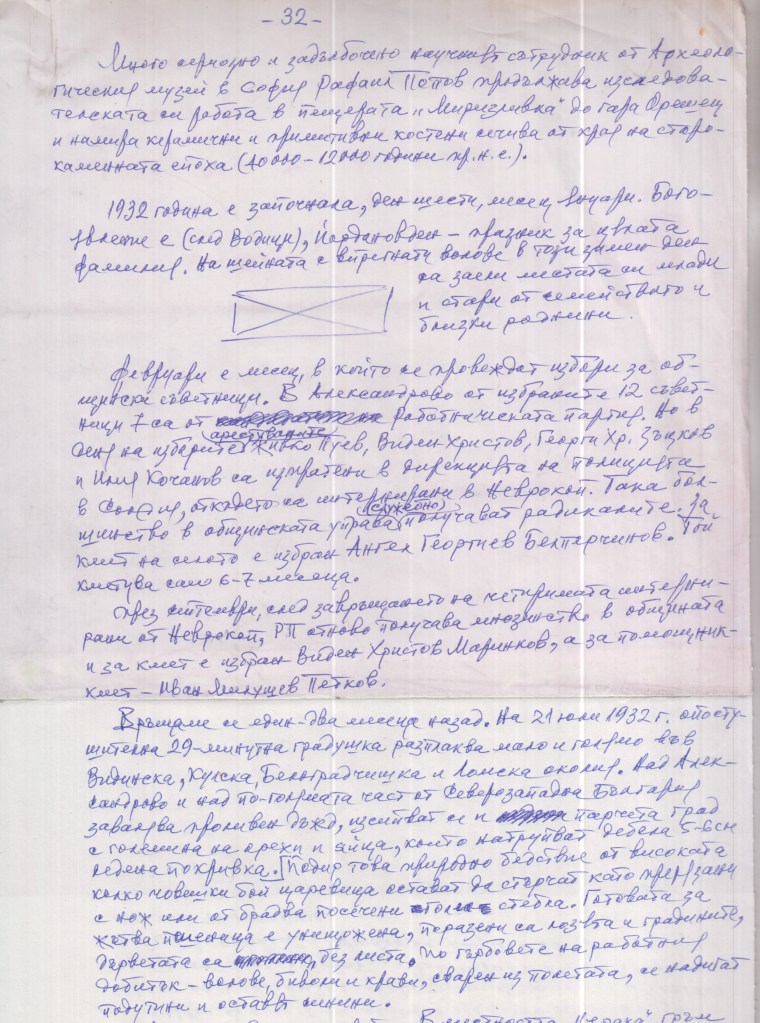 - 32 -
Много сериозно и задълбочено научният сътрудник от Археоло-
гическия музей в София Рафаил Попов продължава изследова-
телската си работа в пещерата „Миризливка" до гара Орешец
и намира керамични и примитивни костени сечива от края на старо-
каменната епоха (10 000 – 12 000 години пр.н.е.).
1932 година е започнала, ден шести, месец януари. Бого-
явление е (след Водици), Йордановден – празник за цялата
фамилия. На шейната с впрегнати волове в този зимен ден
са заели местата си млади
и стари от семейството и
близки роднини.
Февруари е месец, в който се провеждат избори за об-
щински съветници. В Александрово от избраните 12 съвет-
ници 7 са от Работническата партия. Но в
деня на изборите арестуваните Пуев, Виден Христов, Георги Хр. Зънков
и Илия Кочанов са изпратени в дирекцията на полицията
в София, откъдето са интернирани в Неврокоп. Така бол-
шинство в общинската управа (служебно) получават радикалите. За
кмет на селото е избран Ангел Георгиев Белперчинов. Той
кметува само 6-7 месеца.
През септември, след завръщането на четиримата интерни-
рани от Неврокоп, РП отново получава мнозинство в общината
и за кмет е избран Виден Христов Маринков, а за помощник-
кмет – Иван Милушев Петков.
Връщаме се един-два месеца назад. На 21 юли 1932 г. опусту-
шителна 29-минутна градушка разплаква мало и голямо във
Видинска, Кулска, Белоградчишка и Ломска околия. Над Алек-
сандрово и над по-голямата част от Северозападна България
завалява проливен дъжд, изсипват се и парчета град
с големина на орехи и яйца, които натрупват дебела 5-6 см
ледена покривка. [Подир това природно бедствие от високата
колко човешки бой царевица остават да стърчат като прерязани
с нож или от брадва посечени стебла. Готовата за
жетва пшеница е унищожена, поразени са лозята и градините,
дърветата са без листа. По гърбовете на работния
добитък – волове, биволи и крави, сварен из полетата, се надигат
подутини и остават синини.